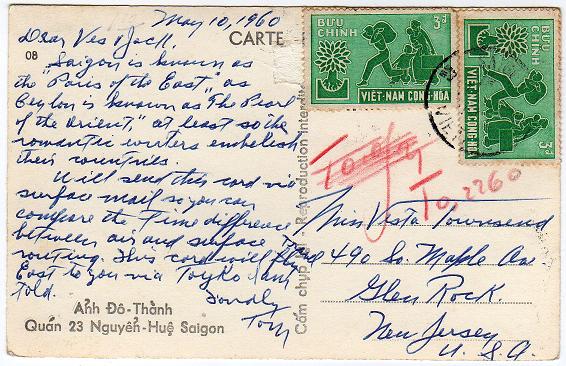 May 10, 1960
CARTE
08
Dear Ves & Jack.
Saigon is known as
the "Paris of the East," as
Ceylon is known as The Pearl
of the Orient," at least so the
romantic writers embelesh
their countries.
Will send this card via
surface mail so you can
compare the Time difference
between air and surface
routing. This card will
East to you via Toyko I am
told.
Fondly
Tom
Ảnh Đô-Thành
Quán 23 Nguyễn-Huệ Saigon
Cấm chụp lại - Reproduction interdite
BƯU CHÍNH
3đ
VIỆT-NAM CỘNG-HÒA
BƯU CHÍNH
3đ
VIỆT-NAM CỘNG-HÒA
To, 2260
Miss Vesta Townsend
490 So. Maple Ave
Glen Rock.
New Jersey
U. S. A.